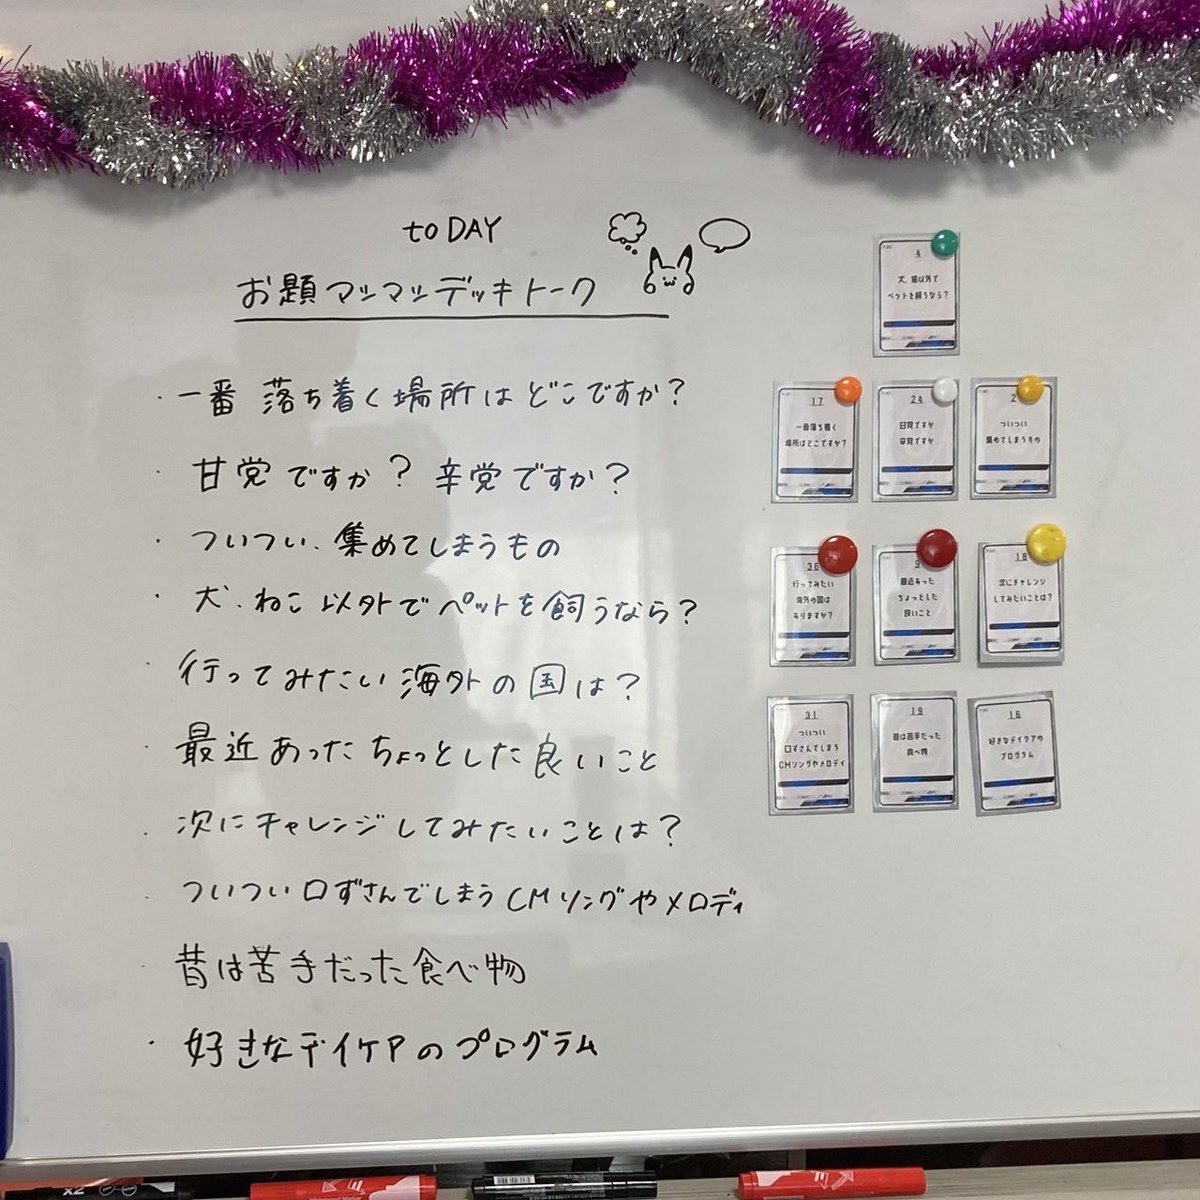 toDAY
お題マシマシデッキトーク
・一番 落ち着く場所はどこですか?
・甘党ですか? 辛党ですか?
・ついつい、集めてしまうもの
・犬、ねこ以外でペットを飼うなら?
・行ってみたい海外の国は?
・最近あったちょっとした良いこと
・次にチャレンジしてみたいことは?
・ついつい口ずさんでしまうCMソングやメロディ
・昔は苦手だった食べ物
・好きなデイケアのプログラム
4
犬、猫以外で
ペットを飼うなら?
17
一番落ち着く
場所はどこですか?
24
甘党ですか
辛党ですか
2
ついつい
集めてしまうもの
36
行ってみたい
海外の国は
ありますか?
9
最近あった
ちょっとした
良いこと
18
次にチャレンジ
してみたいことは?
31
ついつい
口ずさんでしまう
CMソングやメロディ
19
昔は苦手だった
食べ物
16
好きなデイケアの
プログラム
x2